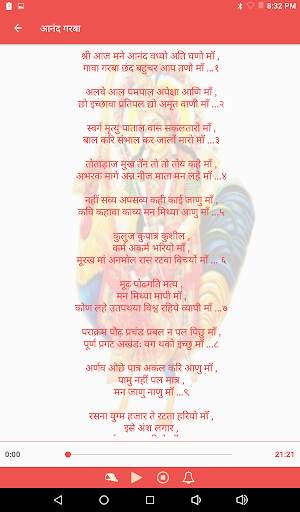 8:32 PM
आनंद गरबा
श्री आज मने आनंद वध्यो अति घणो माँ ,
गावा गरबा छंद बहुचर आप तणो माँ ...१
अलवे आल पमपाल अपेक्षा आणि माँ ,
छो इच्छावा प्रतिपल द्यो अमृत वाणी माँ ...२
स्वर्ग मृत्यु पाताल वास सकलतारो माँ ,
बाल करि संभाल कर जालों मारो माँ ...३
तोताड़ाज मुख तॅन तो तो तोय कहे माँ ,
अभरक मागे अॅन्न नीज माता मन लहे माँ ...४
नहीं सव्य अपसव्य कही काई जाणु माँ ,
कवि कहावा काव्य मन मिथ्या आणु माँ ...५
कुलुज कुपात्र कुशील ,
कर्म अकर्म भरियो माँ ,
मूरख मां अनमोल रास रटवा विचर्यो माँ ... ६
मूढ़ पोढगति मत्य ,
मन मिथ्या मापी माँ ,
कोण लहे उतपथया विश्व रहिये व्यापी माँ ...७
पराक्रम पौढ़ प्रचंड प्रबल न पल पिछु माँ ,
पूर्ण प्रगट अखंडः यग थको इच्छु माँ ...८
अर्णव ओछे पात्र अकल करि आणु माँ ,
पामु नहीं पल मात्र ,
मन जाणु नाणु माँ ...९
रसना युग्म हजार ते रटता हरियो माँ ,
इसे अंश लगार ,
0:00
21:21